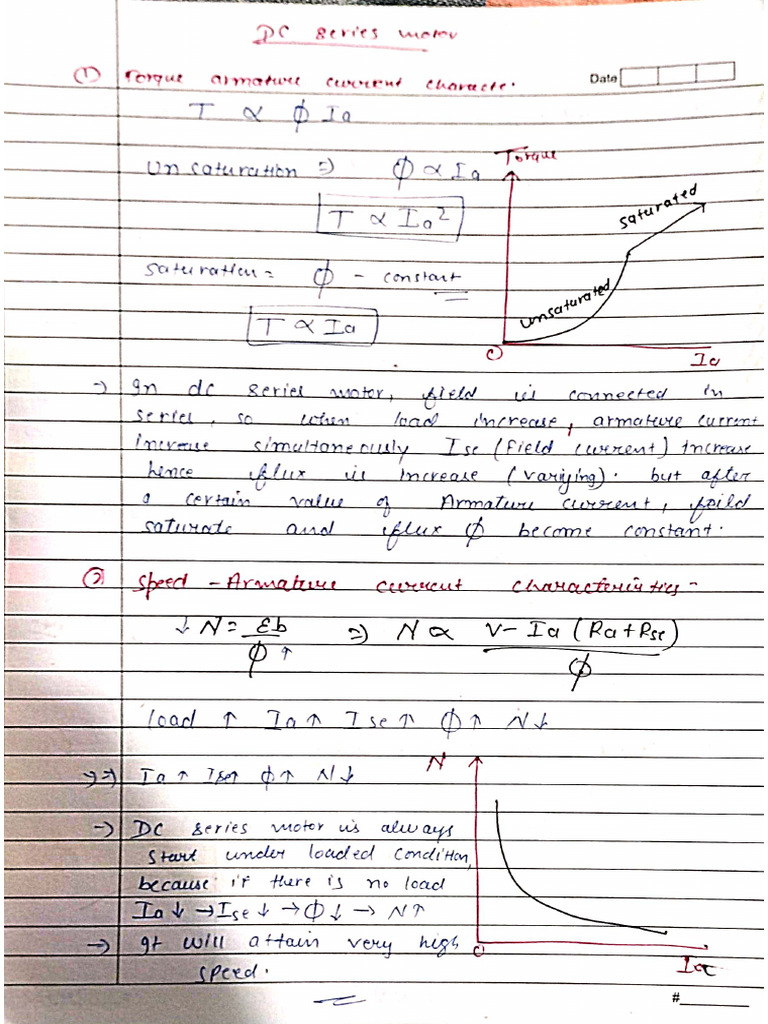 DC series motor
(1) Torque armature current characte.
Date
T ∝ ϕ Ia
Unsaturation => ϕ ∝ Ia
T ∝ Ia²
saturation = ϕ - constant
T ∝ Ia
Torque
saturated
unsaturated
O
Ia
→ In dc series motor, field is connected in
series, so when load increase, armature current
increase simultaneously Ise (field current) increase
hence flux is increase (variying). but after
a certain value of Armature current, feild
saturate and flux ϕ become constant.
(2) Speed - Armature current characteristics -
↓ N = Eb / ϕ ↑ => N ∝ V - Ia (Ra + Rse) / ϕ
load ↑ Ia ↑ Ise ↑ ϕ ↑ N ↓
→ => Ia ↑ Ise ↑ ϕ ↑ N ↓
→ DC series motor is always
start under loaded condition,
because if there is no load
Ia ↓ → Ise ↓ → ϕ ↓ → N ↑
→ It will attain very high
speed.
N
O
Ia
#